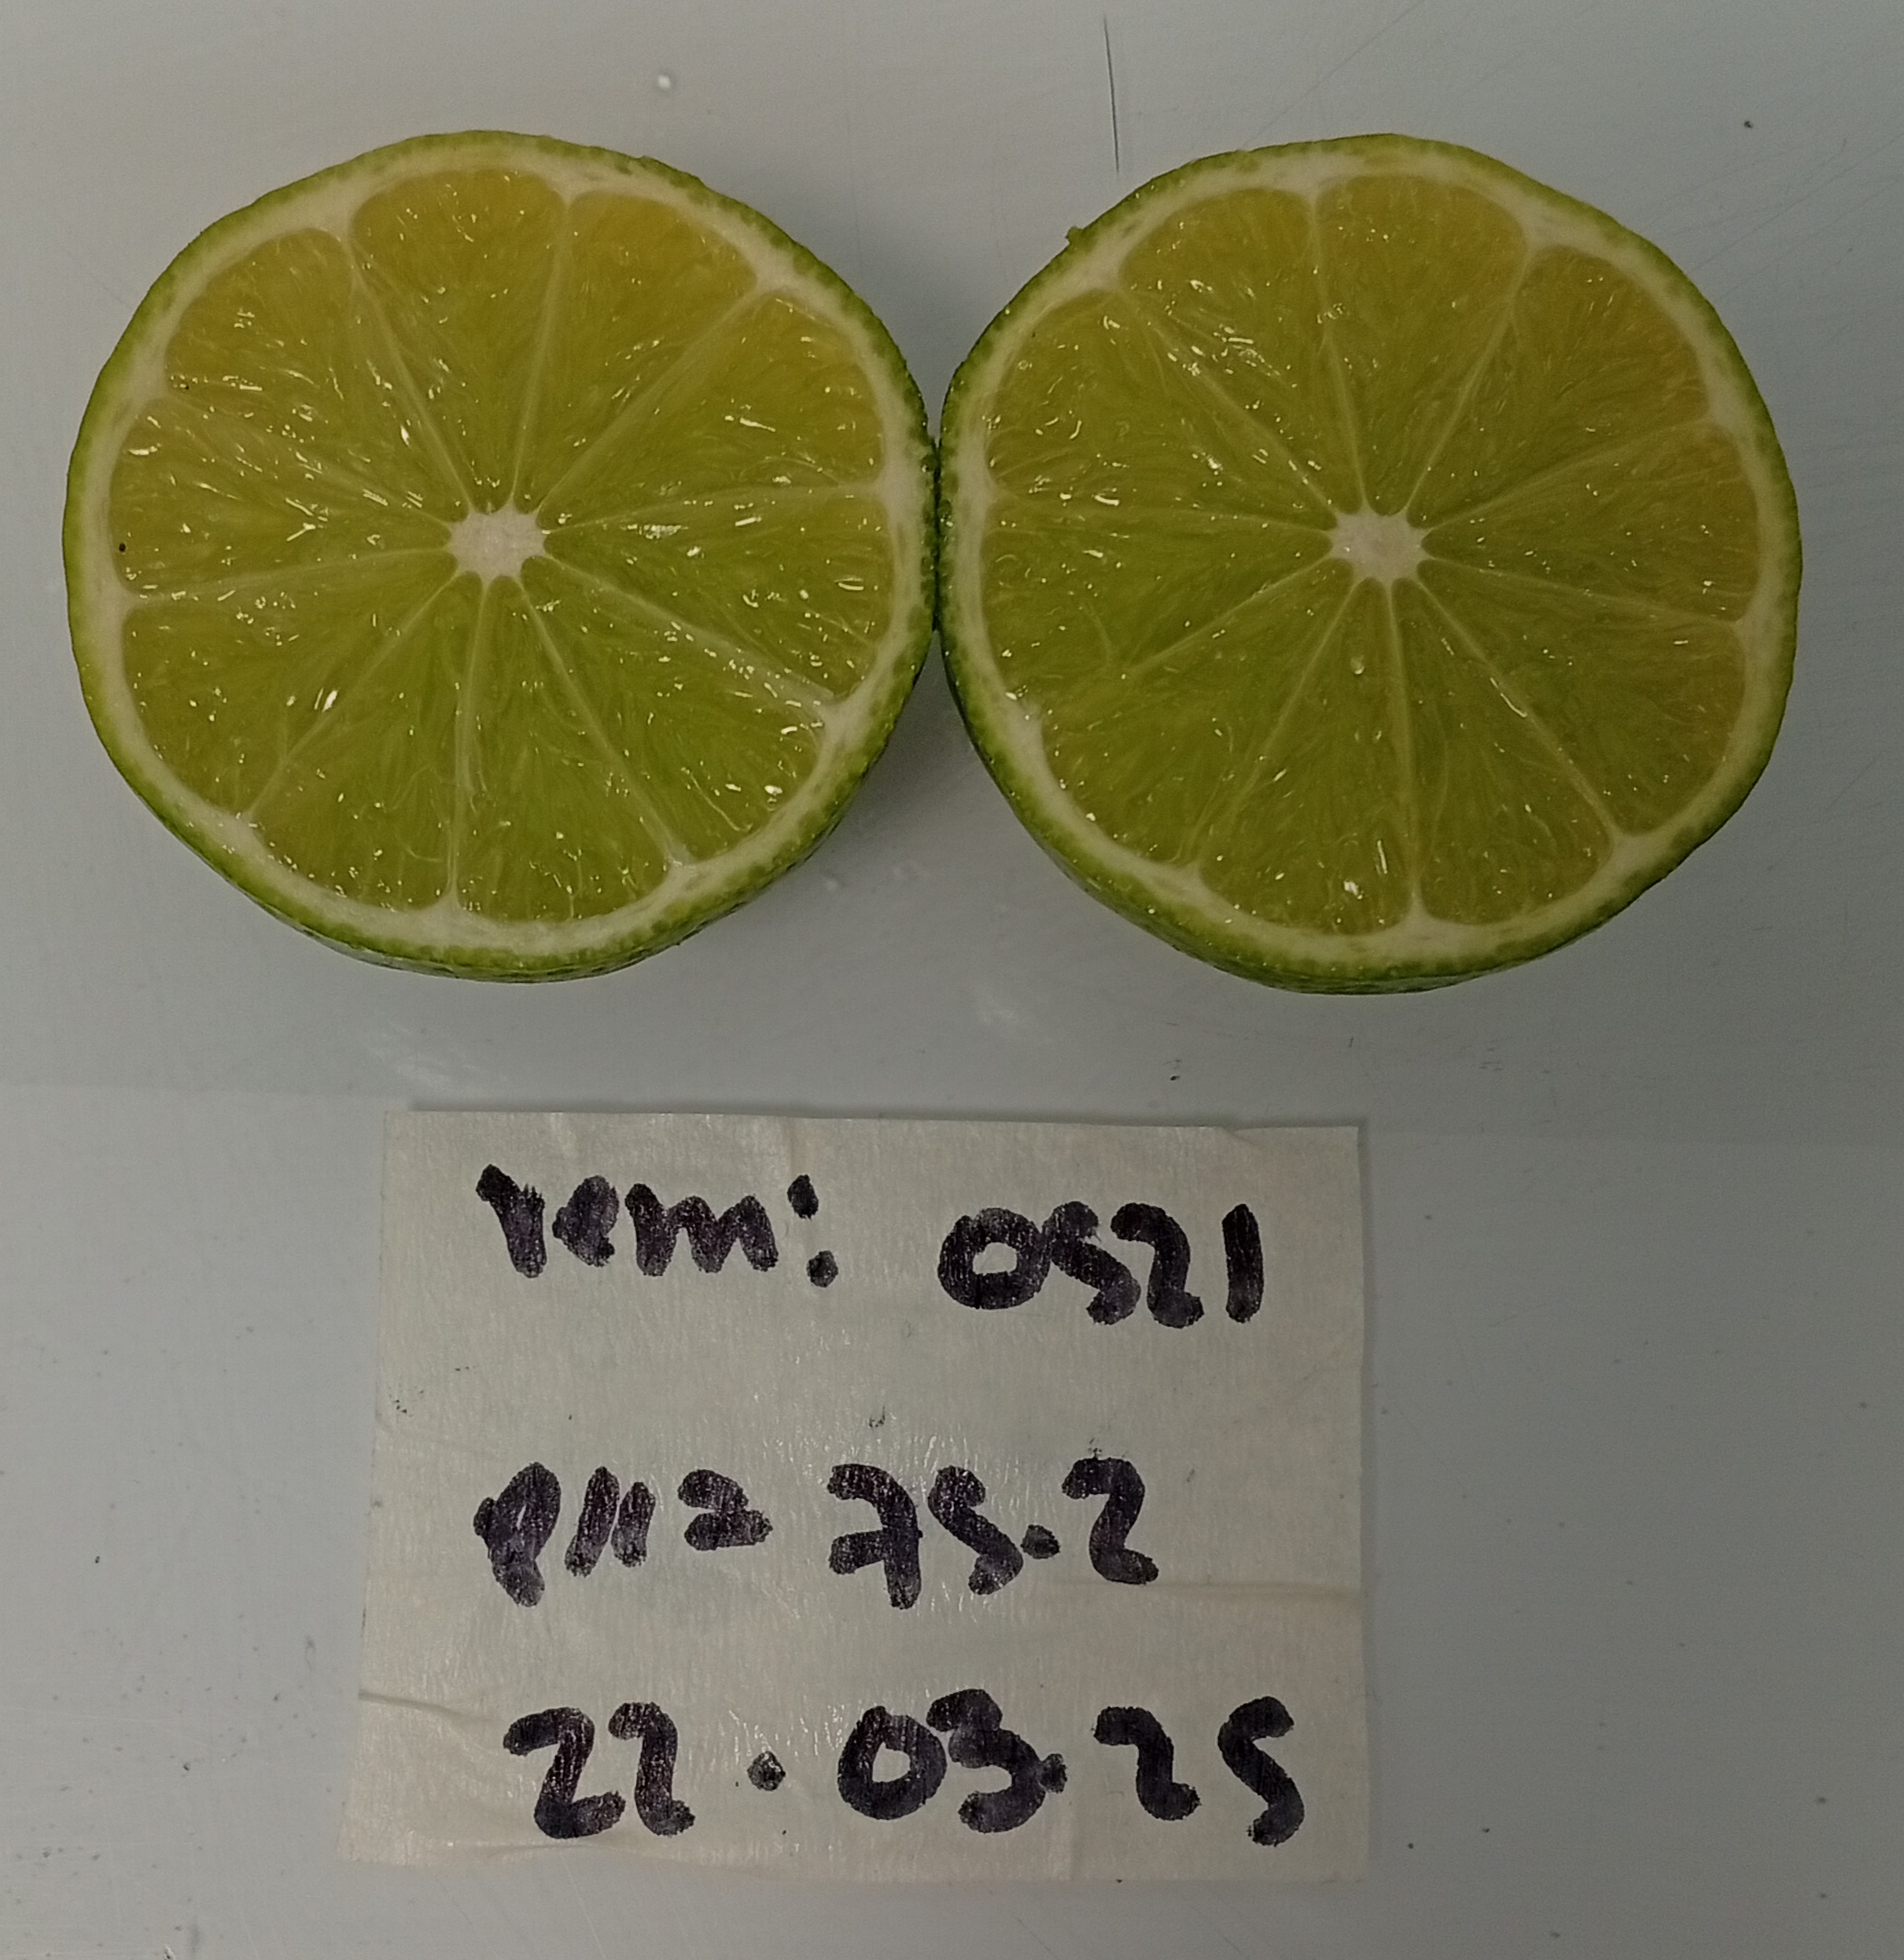 rem: 0521
PH= 75.2
22.03.25